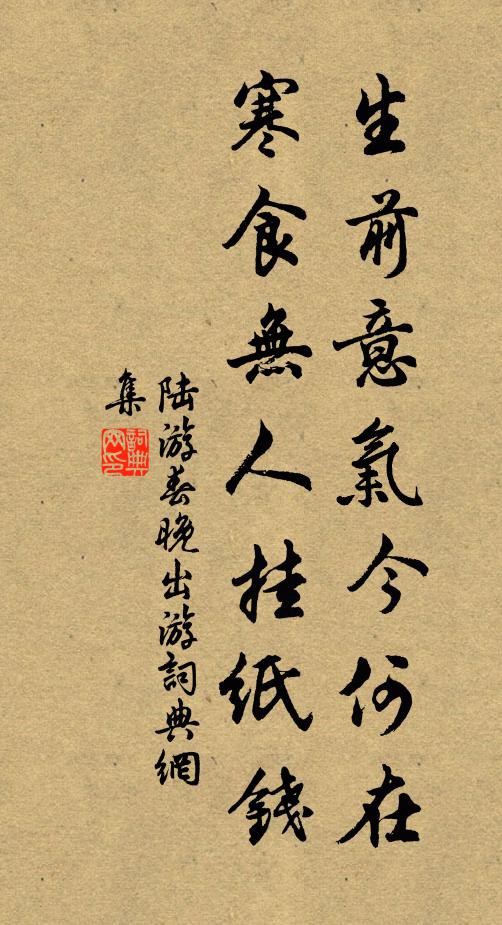 生前意氣今何在
寒食無人挂紙錢
陆游春晚出游詞典網
集
詞典網印